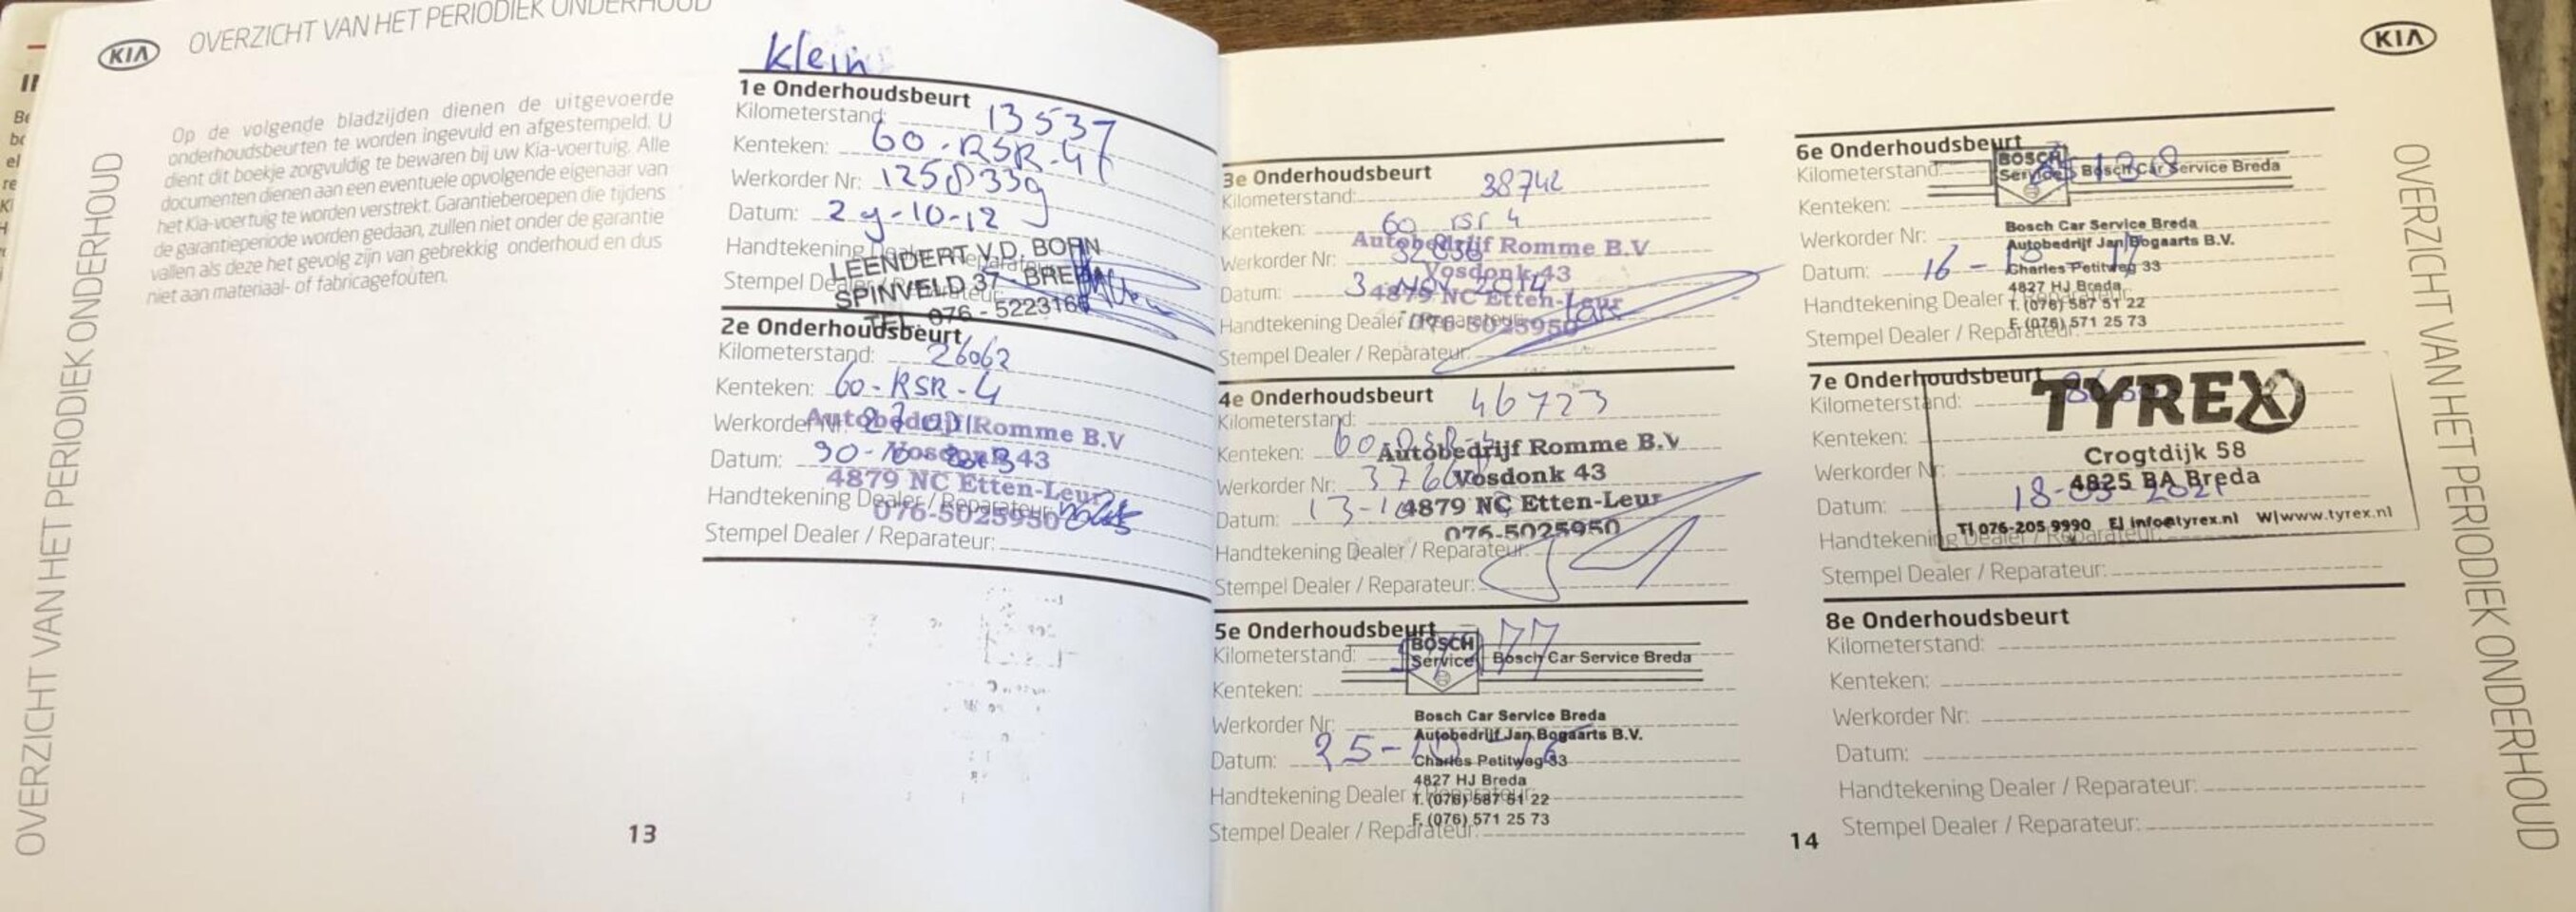 KIA
OVERZICHT VAN HET PERIODIEK ONDERHOUD
OVERZICHT VAN HET PERIODIEK ONDERHOUD
Op de volgende bladzijden dienen de uitgevoerde
onderhoudsbeurten te worden ingevuld en afgestempeld. U
dient dit boekje zorgvuldig te bewaren bij uw Kia-voertuig. Alle
documenten dienen aan een eventuele opvolgende eigenaar van
het Kia-voertuig te worden verstrekt. Garantieberoepen die tijdens
de garantieperiode worden gedaan, zullen niet onder de garantie
vallen als deze het gevolg zijn van gebrekkig onderhoud en dus
niet aan materiaal- of fabricagefouten.
Klein
1e Onderhoudsbeurt
Kilometerstand: 13537
Kenteken: 60-RSR-4
Werkorder Nr: 1250339
Datum: 29-10-12
Handtekening Dealer / Reparateur:
Stempel Dealer / Reparateur:
LEENDERT V.D. BORN
SPINVELD 37 - BREDA
TEL. 076 - 5223166
2e Onderhoudsbeurt
Kilometerstand: 26062
Kenteken: 60-RSR-4
Werkorder Nr:
Datum: 30-10-2013
Handtekening Dealer / Reparateur:
Stempel Dealer / Reparateur:
Autobedrijf Romme B.V
Vosdonk 43
4879 NC Etten-Leur
076-5025950
13
3e Onderhoudsbeurt
Kilometerstand: 38742
Kenteken: 60 rsr 4
Werkorder Nr: 32836
Datum: 3 Nov 2014
Handtekening Dealer / Reparateur:
Stempel Dealer / Reparateur:
Autobedrijf Romme B.V
Vosdonk 43
4879 NC Etten-Leur
076-5025950
4e Onderhoudsbeurt
Kilometerstand: 46723
Kenteken: 60 RSR-4
Werkorder Nr:
Datum: 13-1
Handtekening Dealer / Reparateur:
Stempel Dealer / Reparateur:
Autobedrijf Romme B.V
Vosdonk 43
4879 NC Etten-Leur
076-5025950
5e Onderhoudsbeurt
Kilometerstand:
Kenteken:
Werkorder Nr:
Datum: 25-10-16
Handtekening Dealer / Reparateur:
Stempel Dealer / Reparateur:
BOSCH
Service
Bosch Car Service Breda
Bosch Car Service Breda
Autobedrijf Jan Bogaarts B.V.
Charles Petitweg 33
4827 HJ Breda
T. (076) 587 51 22
F. (076) 571 25 73
KIA
6e Onderhoudsbeurt
Kilometerstand:
Kenteken:
Werkorder Nr:
Datum: 16-10-17
Handtekening Dealer / Reparateur:
Stempel Dealer / Reparateur:
BOSCH
Service
Bosch Car Service Breda
Bosch Car Service Breda
Autobedrijf Jan Bogaarts B.V.
Charles Petitweg 33
4827 HJ Breda
T. (076) 587 51 22
F. (076) 571 25 73
7e Onderhoudsbeurt
Kilometerstand:
Kenteken:
Werkorder Nr:
Datum: 18-03-2021
Handtekening Dealer / Reparateur:
Stempel Dealer / Reparateur:
TYREX
Crogtdijk 58
4825 BA Breda
T| 076-205 9990 E| info@tyrex.nl W| www.tyrex.nl
8e Onderhoudsbeurt
Kilometerstand:
Kenteken:
Werkorder Nr:
Datum:
Handtekening Dealer / Reparateur:
Stempel Dealer / Reparateur:
14
OVERZICHT VAN HET PERIODIEK ONDERHOUD